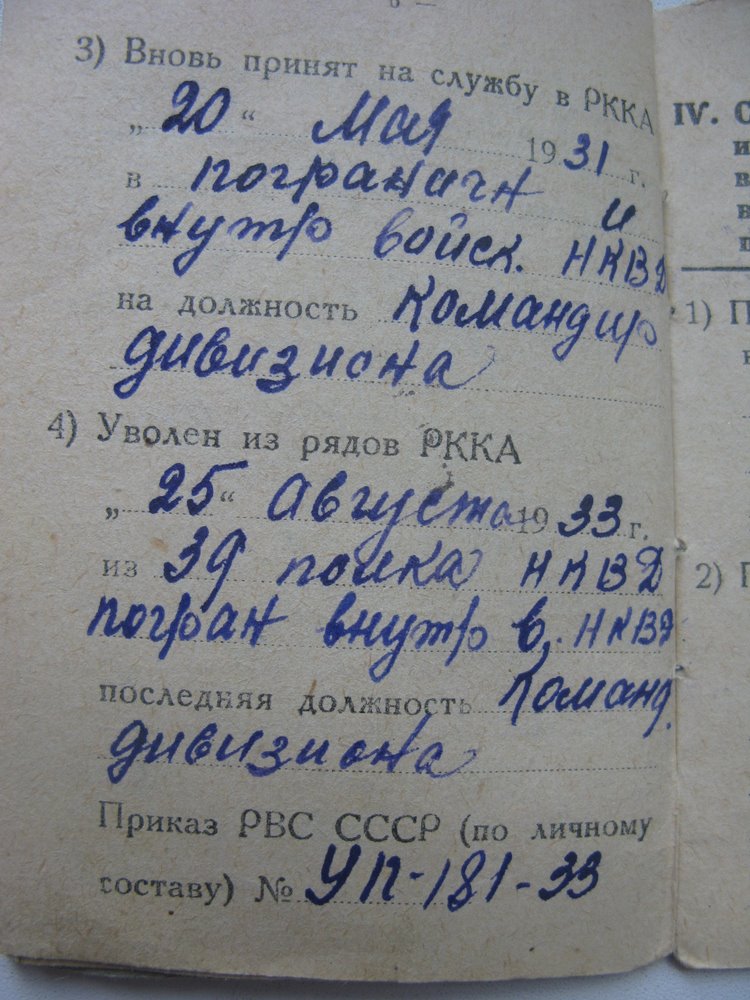 3) Вновь принят на службу в РККА
„ 20 “ Мая 1931 г.
в погранични и
внутр войск. НКВД
на должность Командир
дивизиона
4) Уволен из рядов РККА
„ 25 “ Августа 1933 г.
из 39 полка НКВД
погран внутр в. НКВД
последняя должность Команд.
дивизиона
Приказ РВС СССР (по личному
составу) № УП-181-33
IV. С
и
в
в
п
1) П
2) Г